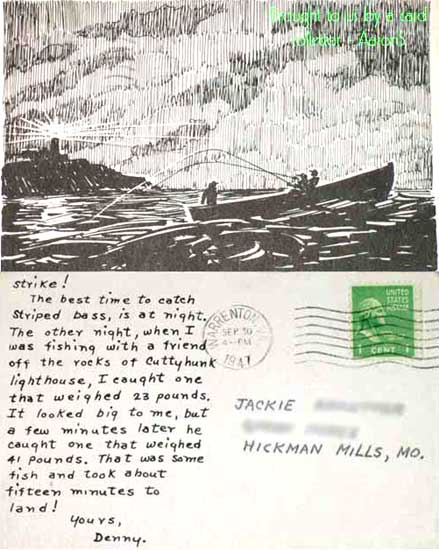 Brought to us by a card
collector - AaronS
strike!
The best time to catch
Striped bass, is at night.
The other night, when I
was fishing with a friend
off the rocks of Cuttyhunk
lighthouse, I caught one
that weighed 23 pounds.
It looked big to me, but
a few minutes later he
caught one that weighed
41 pounds. That was some
fish and took about
fifteen minutes to
land!
Yours,
Denny.
WARRENTON
SEP 30
4-PM
1947
UNITED
STATES
POSTAGE
1 CENT 1
JACKIE
HICKMAN MILLS, MO.